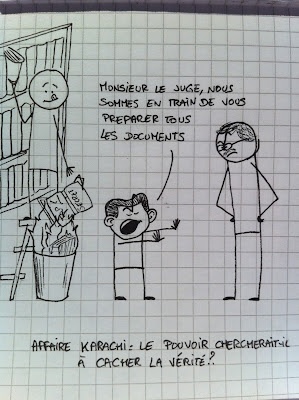 MONSIEUR LE JUGE, NOUS
SOMMES EN TRAIN DE VOUS
PREPARER TOUS
LES DOCUMENTS
AFFAIRE KARACHI : LE POUVOIR CHERCHERAIT-IL
À CACHER LA VÉRITÉ ?